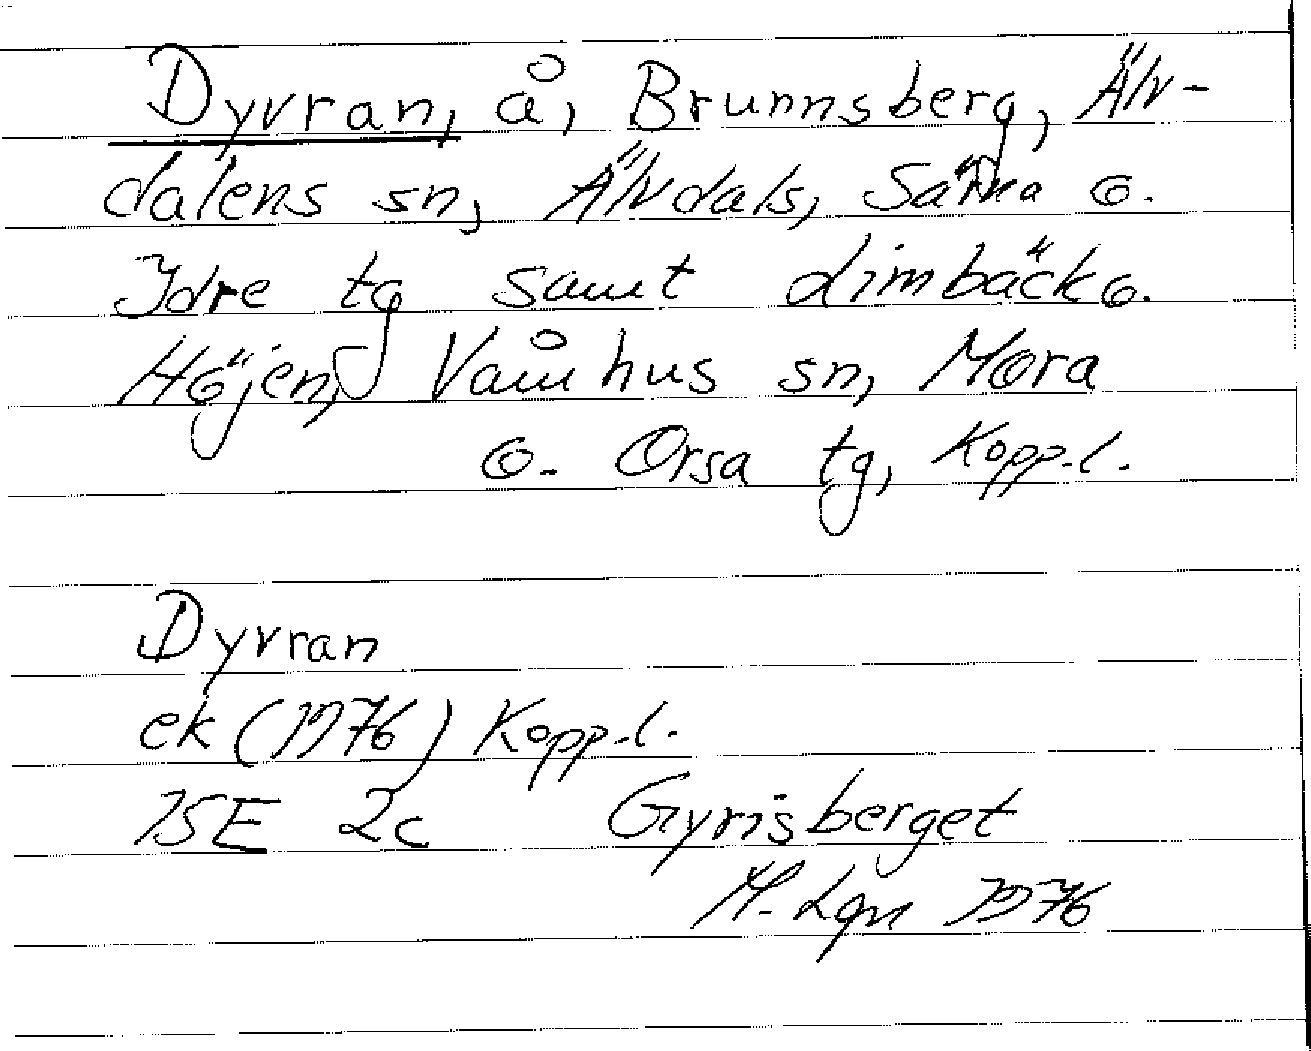 Dyvran, å, Brunnsberg, Älv-
dalens sn, Älvdals, Särna o.
Idre tg samt Limbäck o.
Höjen, Våmhus sn, Mora
o. Orsa tg, Kopp.l.
Dyvran
ek (1976) Kopp.l.
15E 2c Gyrisberget
M. Lgn 1976